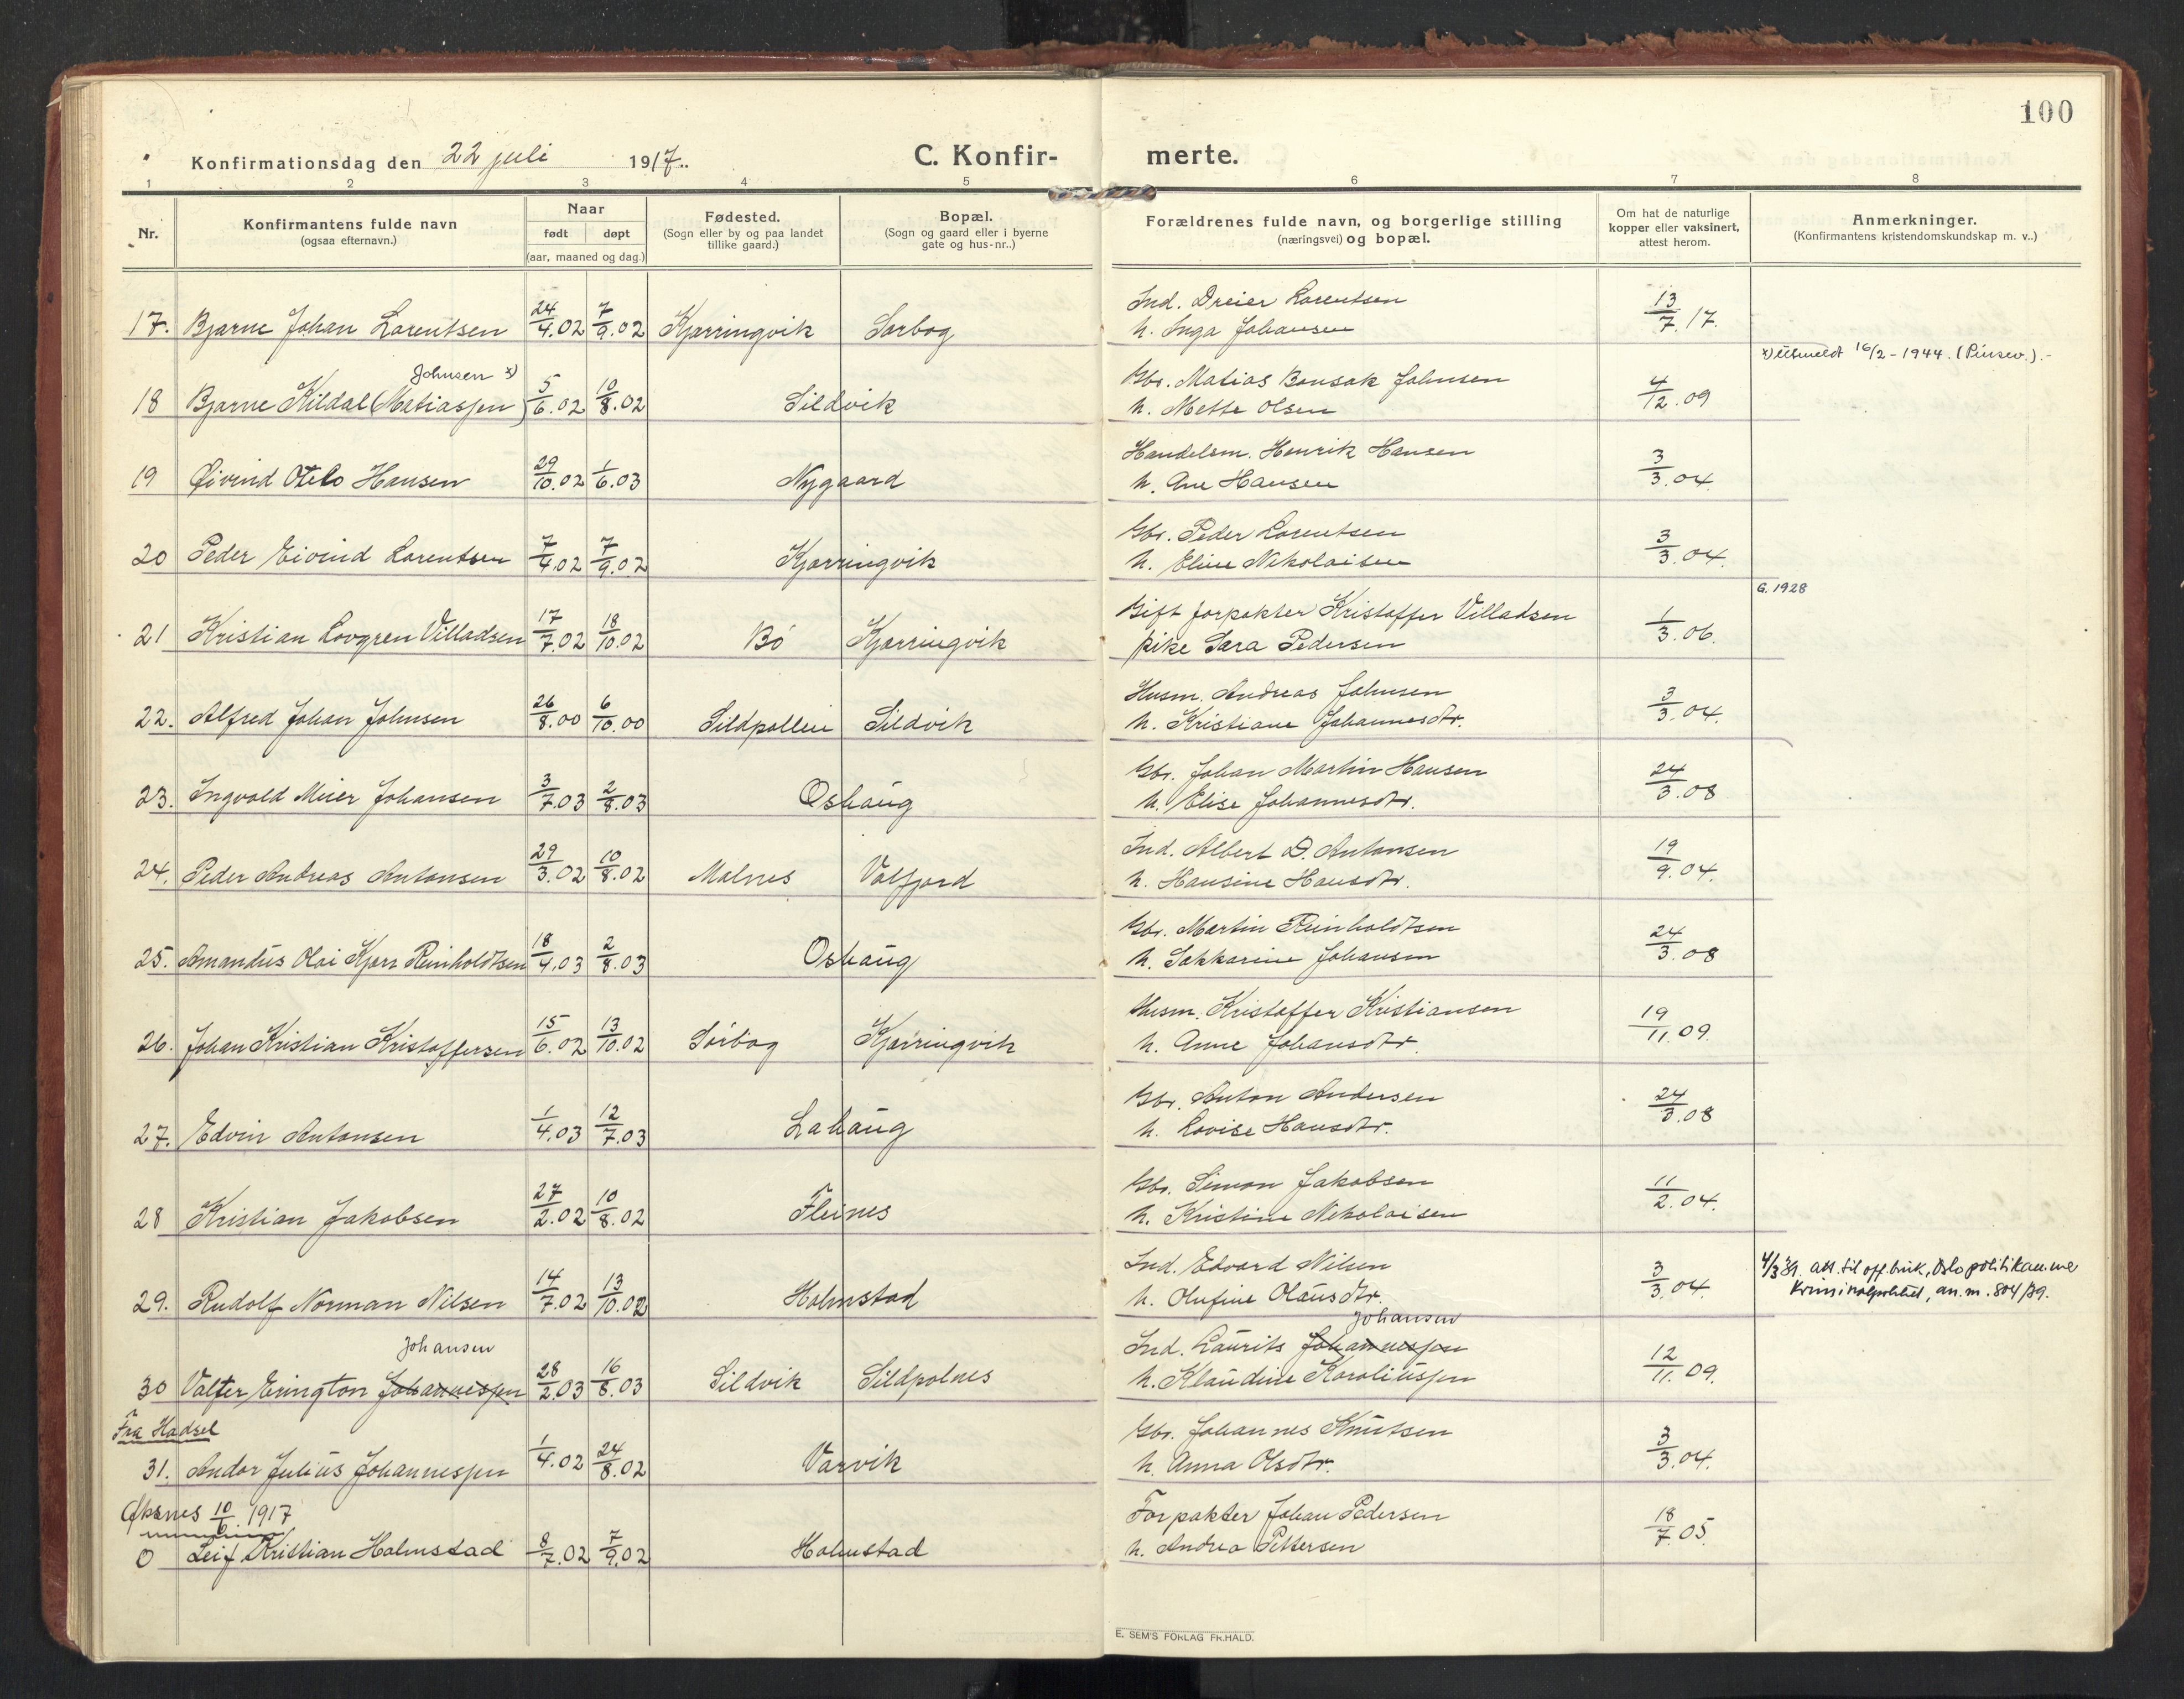 100
Konfirmationsdag den 22 juli 1917.
C. Konfir- merte.
1 2 3 4 5 6 7 8
Nr.
Konfirmantens fulde navn
(ogsaa efternavn.)
Naar
født døpt
(aar, maaned og dag.)
Fødested.
(Sogn eller by og paa landet
tillike gaard.)
Bopæl.
(Sogn og gaard eller i byerne
gate og hus-nr..)
Forældrenes fulde navn, og borgerlige stilling
(næringsvei) og bopæl.
Om hat de naturlige
kopper eller vaksinert,
attest herom.
Anmerkninger.
(Konfirmantens kristendomskundskap m. v..)
Ind. Dreier Lorentsen
17. Bjarne Johan Lorentsen 24/4.02 7/9.02 Kjørringvik Sørbog h. Inga Johansen 13/7.17.
x) utmeldt 16/2-1944. (Pinsev.).-
Johnsen x)
Gbr. Matias Bonsak Johnsen
18 Bjarne Kildal (Matiassen) 5/6.02 10/8.02 Sildvik h. Mette Olsen 4/12.09
Handelsm. Henrik Hansen
19 Øivind Otelo Hansen 29/10.02 1/6.03 Nygaard h. Ane Hansen 3/3.04.
Gbr. Peder Lorentsen
20 Peder Eivind Lorentsen 7/4.02 7/9.02 Kjørringvik h. Eline Nikolaisen 3/3.04.
G. 1928
Gift forpakter Kristoffer Villadsen
21 Kristian Lovgren Villadsen 17/7.02 18/10.02 Bö Kjørringvik pike Sara Pedersen 1/3.06.
Husm. Andreas Johnsen
22. Alfred Johan Johnsen 26/8.00 6/10.00 Sildpollen Sildvik h. Kristiane Johannesdtr. 3/3.04.
Gbr. Johan Martin Hansen
23. Ingvald Meier Johansen 3/7.03 2/8.03 Oshaug h. Elise Johannesdtr. 24/3.08
Ind. Albert D. Antonsen
24. Peder Andreas Antonsen 29/3.02 10/8.02 Malnes Valfjord h. Hansine Hansdtr. 19/9.04.
Gbr. Martin Reinholdtsen
25. Amandus Olai Kjørr Reinholdtsen 18/4.03 2/8.03 Oshaug h. Sakkarine Johansen 24/3.08
Husm. Kristoffer Kristiansen
26. Johan Kristian Kristoffersen 15/6.02 13/10.02 Sørbog Kjørringvik h. Anne Johansdtr. 19/11.09.
Gbr. Anton Andersen
27. Edvin Antonsen 1/4.03 12/7.03 Lahaug h. Lovise Hansdtr. 24/3.08
Gbr. Simon Jakobsen
28 Kristian Jakobsen 27/2.02 10/8.02 Fleines h. Kristine Nikolaisen 11/2.04.
Ind. Edvard Nilsen
29. Rudolf Norman Nilsen 14/7.02 13/10.02 Holmstad h. Olufine Olausdtr. 3/3.04.
4/3 39. att. til off. bruk, Oslo politikammer
Kriminalpolitiet, an.m. 804/39.
Johansen
Ind. Laurits Johannessen Johansen
30 Valter Erington Johannessen 28/2.03 16/8.03 Sildvik Sildpolnes h. Klaudine Karoliussen 12/11.09.
Fra Hadsel
Gbr. Johannes Knutsen
31. Andor Julius Johannessen 1/4.02 24/8.02 Varvik h. Anna Olsdtr. 3/3.04.
Øksnes 10/6. 1917
Forpakter Johan Pedersen
0 Leif Kristian Holmstad 8/7.02 7/9.02 Holmstad h. Andrea Pettersen 18/7.05.
E. SEM'S FORLAG FR.HALD.